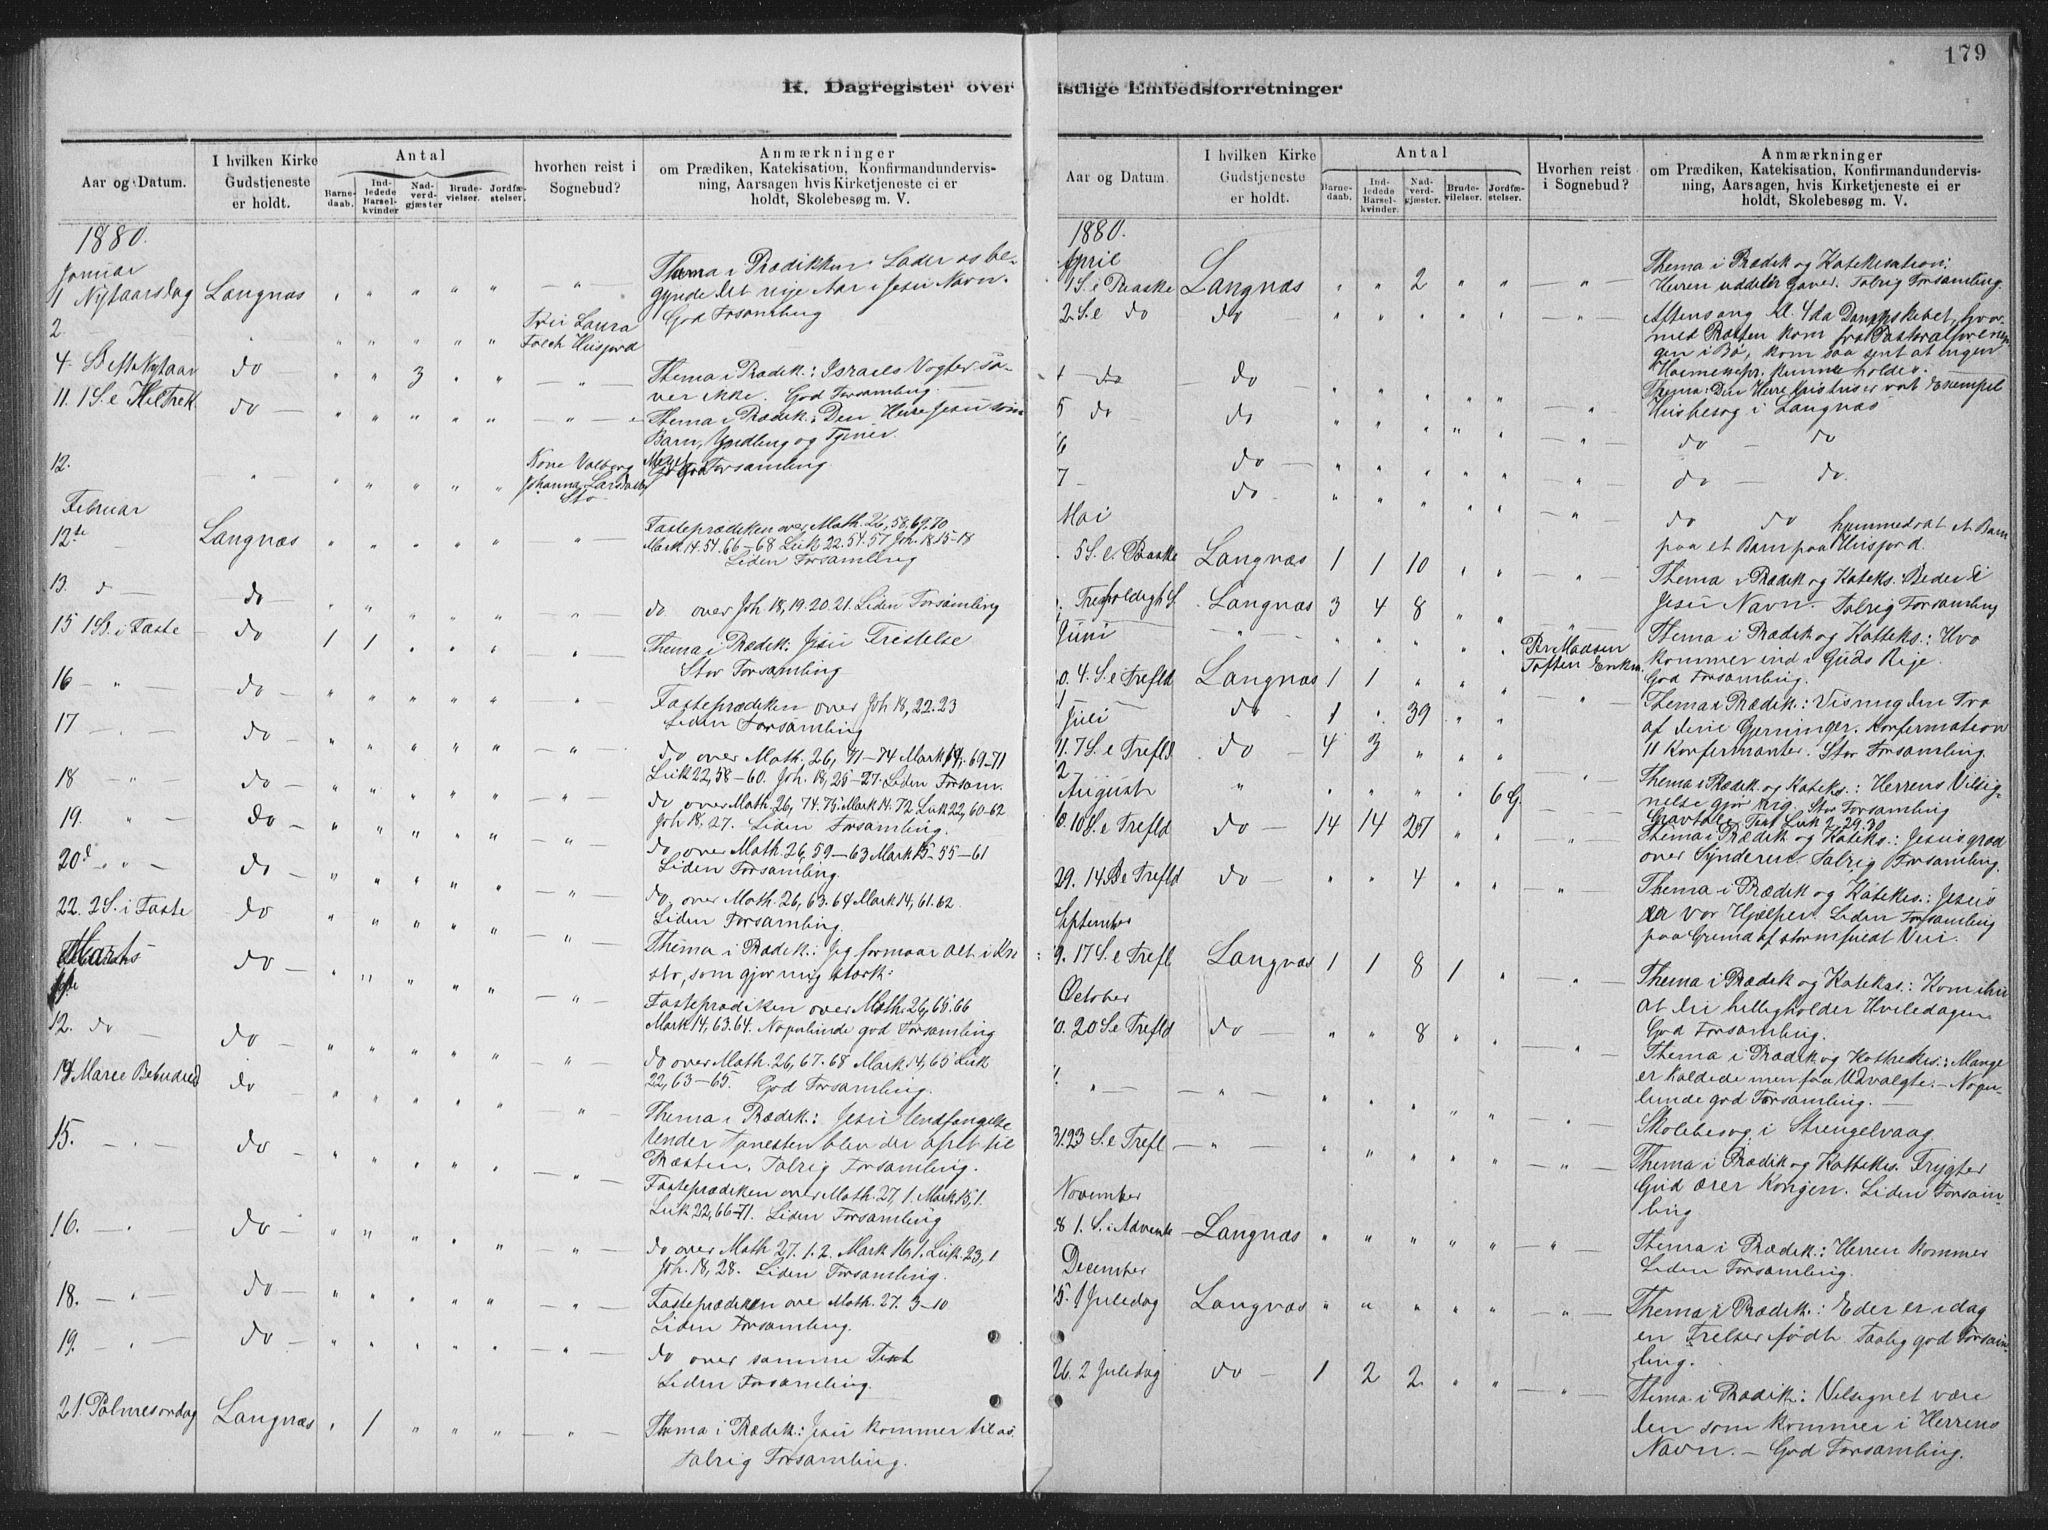 179
K. Dagregister over
istlige Embedsforretninger
Aar og Datum.
I hvilken Kirke
Gudstjeneste
er holdt.
Antal
Barne-
daab.
Ind-
ledede
Barsel-
kvinder
Nad-
verd-
gjæster
Brude-
vielser.
Jordfæ-
stelser.
hvorhen reist i
Sognebud?
Anmærkninger
om Prædiken, Katekisation, Konfirmandundervis-
ning, Aarsagen hvis Kirketjeneste ei er
holdt, Skolebesøg m. V.
1880.
Januar
1 Nytaarsdag Langnæs " " " " " — " — Thema i Prædikken: Lader os be-
gynde det nye Aar i Jesu Navn.
God Forsamling
2 " " " " " Laura
Husjord
4. S. efte Nytaar do " " 3 " " — " — Thema i Prædik.: Israels Vogter so-
ver ikke. God Forsamling.
11. 1 S. e HelTrek do " " " " " — " — Thema i Prædik.: Den Herre Jesu som
Barn, Yndling og
Forsamling
12. " " " " " Kone Valborg
Johanna
Stø
Februar
12te Langnæs " " " " " — " — Fasteprædiken over Math. 26, 58, 69, 70
Mark 14. 54. 66–68 Luk 22. 54. 57 Joh. 18 15-18
Liden Forsamling
13. do " " " " " — " — do over Joh 18, 19. 20. 21. Liden Forsamling
15 1 S. i Faste do 1 1 " " " — " — Thema i Prædik: Jesu Fristelse
Stor Forsamling
16 — " — do " " " " " — " — Fasteprædiken over Joh 18, 22. 23
Liden Forsamling
17 — " — do " " " " " — " — do over Math. 26, 71–74 Mark 14. 69–71
Luk 22, 58–60. Joh. 18, 25–27. Liden Forsam.
18 — " — do " " " " " — " — do over Math. 26, 74. 75. Mark 14. 72 Luk 22, 60–62
Joh 18, 27. Liden Forsamling.
19. " — do " " " " " — " — do over Math. 26, 59–63 Mark 15–55–61
Liden Forsamling.
20d " " do " " " " " — " — do, over Math. 26, 63. 64 Mark 14, 61. 62.
Liden Forsamling.
22. 2 S. i Faste do " " " " " — " — Thema i Prædik.: Jeg formaar Alt i Kri
sto, som gjør mig stærk:
Marts
do " " " " " — " — Fasteprædiken over Math. 26, 65. 66
Mark 14, 63. 64. Nogenlunde god Forsamling
12. do — do " " " " " — " — do over Math. 26, 67. 68 Mark 14, 65 Luk
22, 63–65. God Forsamling.
14 Marie Bebudelse do " " " " " — " — Thema i Prædik.: Jesu Undfangelse
Under Tjenesten blev der ofret til
Præsten. Talrig Forsamling.
15. — " — do " " " " " — " — Fasteprædiken over Math. 27, 1. Mark 15, 1.
Luk 22, 66–71. Liden Forsamling
16. — " — do " " " " " — " — do over Math 27. 1. 2. Mark 16, 1. Luk. 23, 1
Joh. 18, 28. Liden Forsamling.
18. — " — do " " " " " — " — Fasteprædiken over Math. 27. 3–10
Liden Forsamling.
19. " — do " " " " " — " — do over samme Text
Liden Forsamling.
21. Palmesøndag Langnæs " 1 " " " — " — Thema i Prædik: Jesu kommer til os.
Talrig Forsamling.
Aar og Datum.
I hvilken Kirke
Gudstjeneste
er holdt.
Antal
Barne-
daab.
Ind-
ledede
Barsel-
kvinder.
Nad-
verd-
gjæster.
Brude-
vielser.
Jordfæ-
stelser.
Hvorhen reist
i Sognebud?
Anmærkninger
om Prædiken, Katekisation, Konfirmandundervis-
ning, Aarsagen, hvis Kirketjeneste ei er
holdt, Skolebesøg m. V.
1880.
April
1 S. e Paaske Langnæs " " 2 " " — " — Thema i Prædik og Katekisation:
Herren uddeler Gaver. Talrig Forsamling.
2. S. e do do " " " " " Aftensang Kl. 4 da Dampskibet, hvor-
med Præsten kom fra Pastoralforenin
gen i Bø, kom saa sent at ingen
Høimessepr. kunne holdes.
Thema: Den Herre Kristus er vort Exempel
4 — do — do — " " " " " " Husbesøg i Langnæs
5 do do " " " " " — " — do — do
6 do — " " " " " — " — do — do
7 — do " " " " " — " — do do hjemmedøbt et Barn
paa et Barn paa Husjord.
Mai
5 S. e. Paaske Langnæs 1 1 10 " " — " — Thema i Prædik og Kateks. Beder i
Jesu Navn. Talrig Forsamling
Trefoldigh S. Langnæs 3 4 8 " " " Thema i Prædik og Kateks.: Hvo
kommer ind i Guds Rige.
God Forsamling.
Juni " " " " " " Per Madsen
Toften
0. 4. S. e Trefld Langnæs 1 1 " " " " Thema i Prædik.: Vis mig den Tro
af dine Gjerninger. Konfirmation
11 Konfirmanter. Stor Forsamling.
1 do — 1 " 39 " "
Juli
11. 7 S. e Trefld do — 4 3 " " " — " — Thema i Prædik. og Kateks.: Herrens Velsig-
nelse gjør rig. Stor Forsamling
2 " " " " " 6 G. — Gravtale Text Luk 2, 29. 30
August
10 S. e Trefld do — 14 14 27 " " — " — Thema i Prædik og Kateks.: Jesus græd
over Synderen. Talrig Forsamling.
29. 14 S. e Trefld do — " " 4 " " — " — Thema i Prædik og Kateks.: Jesus
er vor Hjælper. Liden Forsamling
paa Grund af stormfuldt Veir.
September
9. 17 S. e Trefl. Langnæs 1 1 8 1 " — " — Thema i Prædik og Kateks.: Kom ihu
at du helligholder Hviledagen
God Forsamling.
October
0. 20 S. e Trefld do — " " 8 " " — " — Thema i Prædik og Kathekes.: Mange
er kaldede men faa Udvalgte. – Nogen-
lunde god Forsamling. —
" — — " — " " " " " — " — Skolebesøg i Strengelvaag.
31. 23 S. e Trefl. — " — " " " " " — " — Thema i Prædik og Kateks. Frygter
Gud ærer Kongen. Liden Forsam-
ling
November
8 1. S. i Advent — Langnæs " " " " " — " — Thema i Prædik.: Herren kommer
Liden Forsamling.
December
5. 1 Juledag Langnæs " " " " " — " — Thema i Prædik.: Eder er idag
en Frelser født. Taalig god Forsam-
ling.
26. 2 Juledag do — 1 2 2 " " — " — Thema i Prædik.: Velsignet være
den som kommer i Herrens
Navn. – God Forsamling.